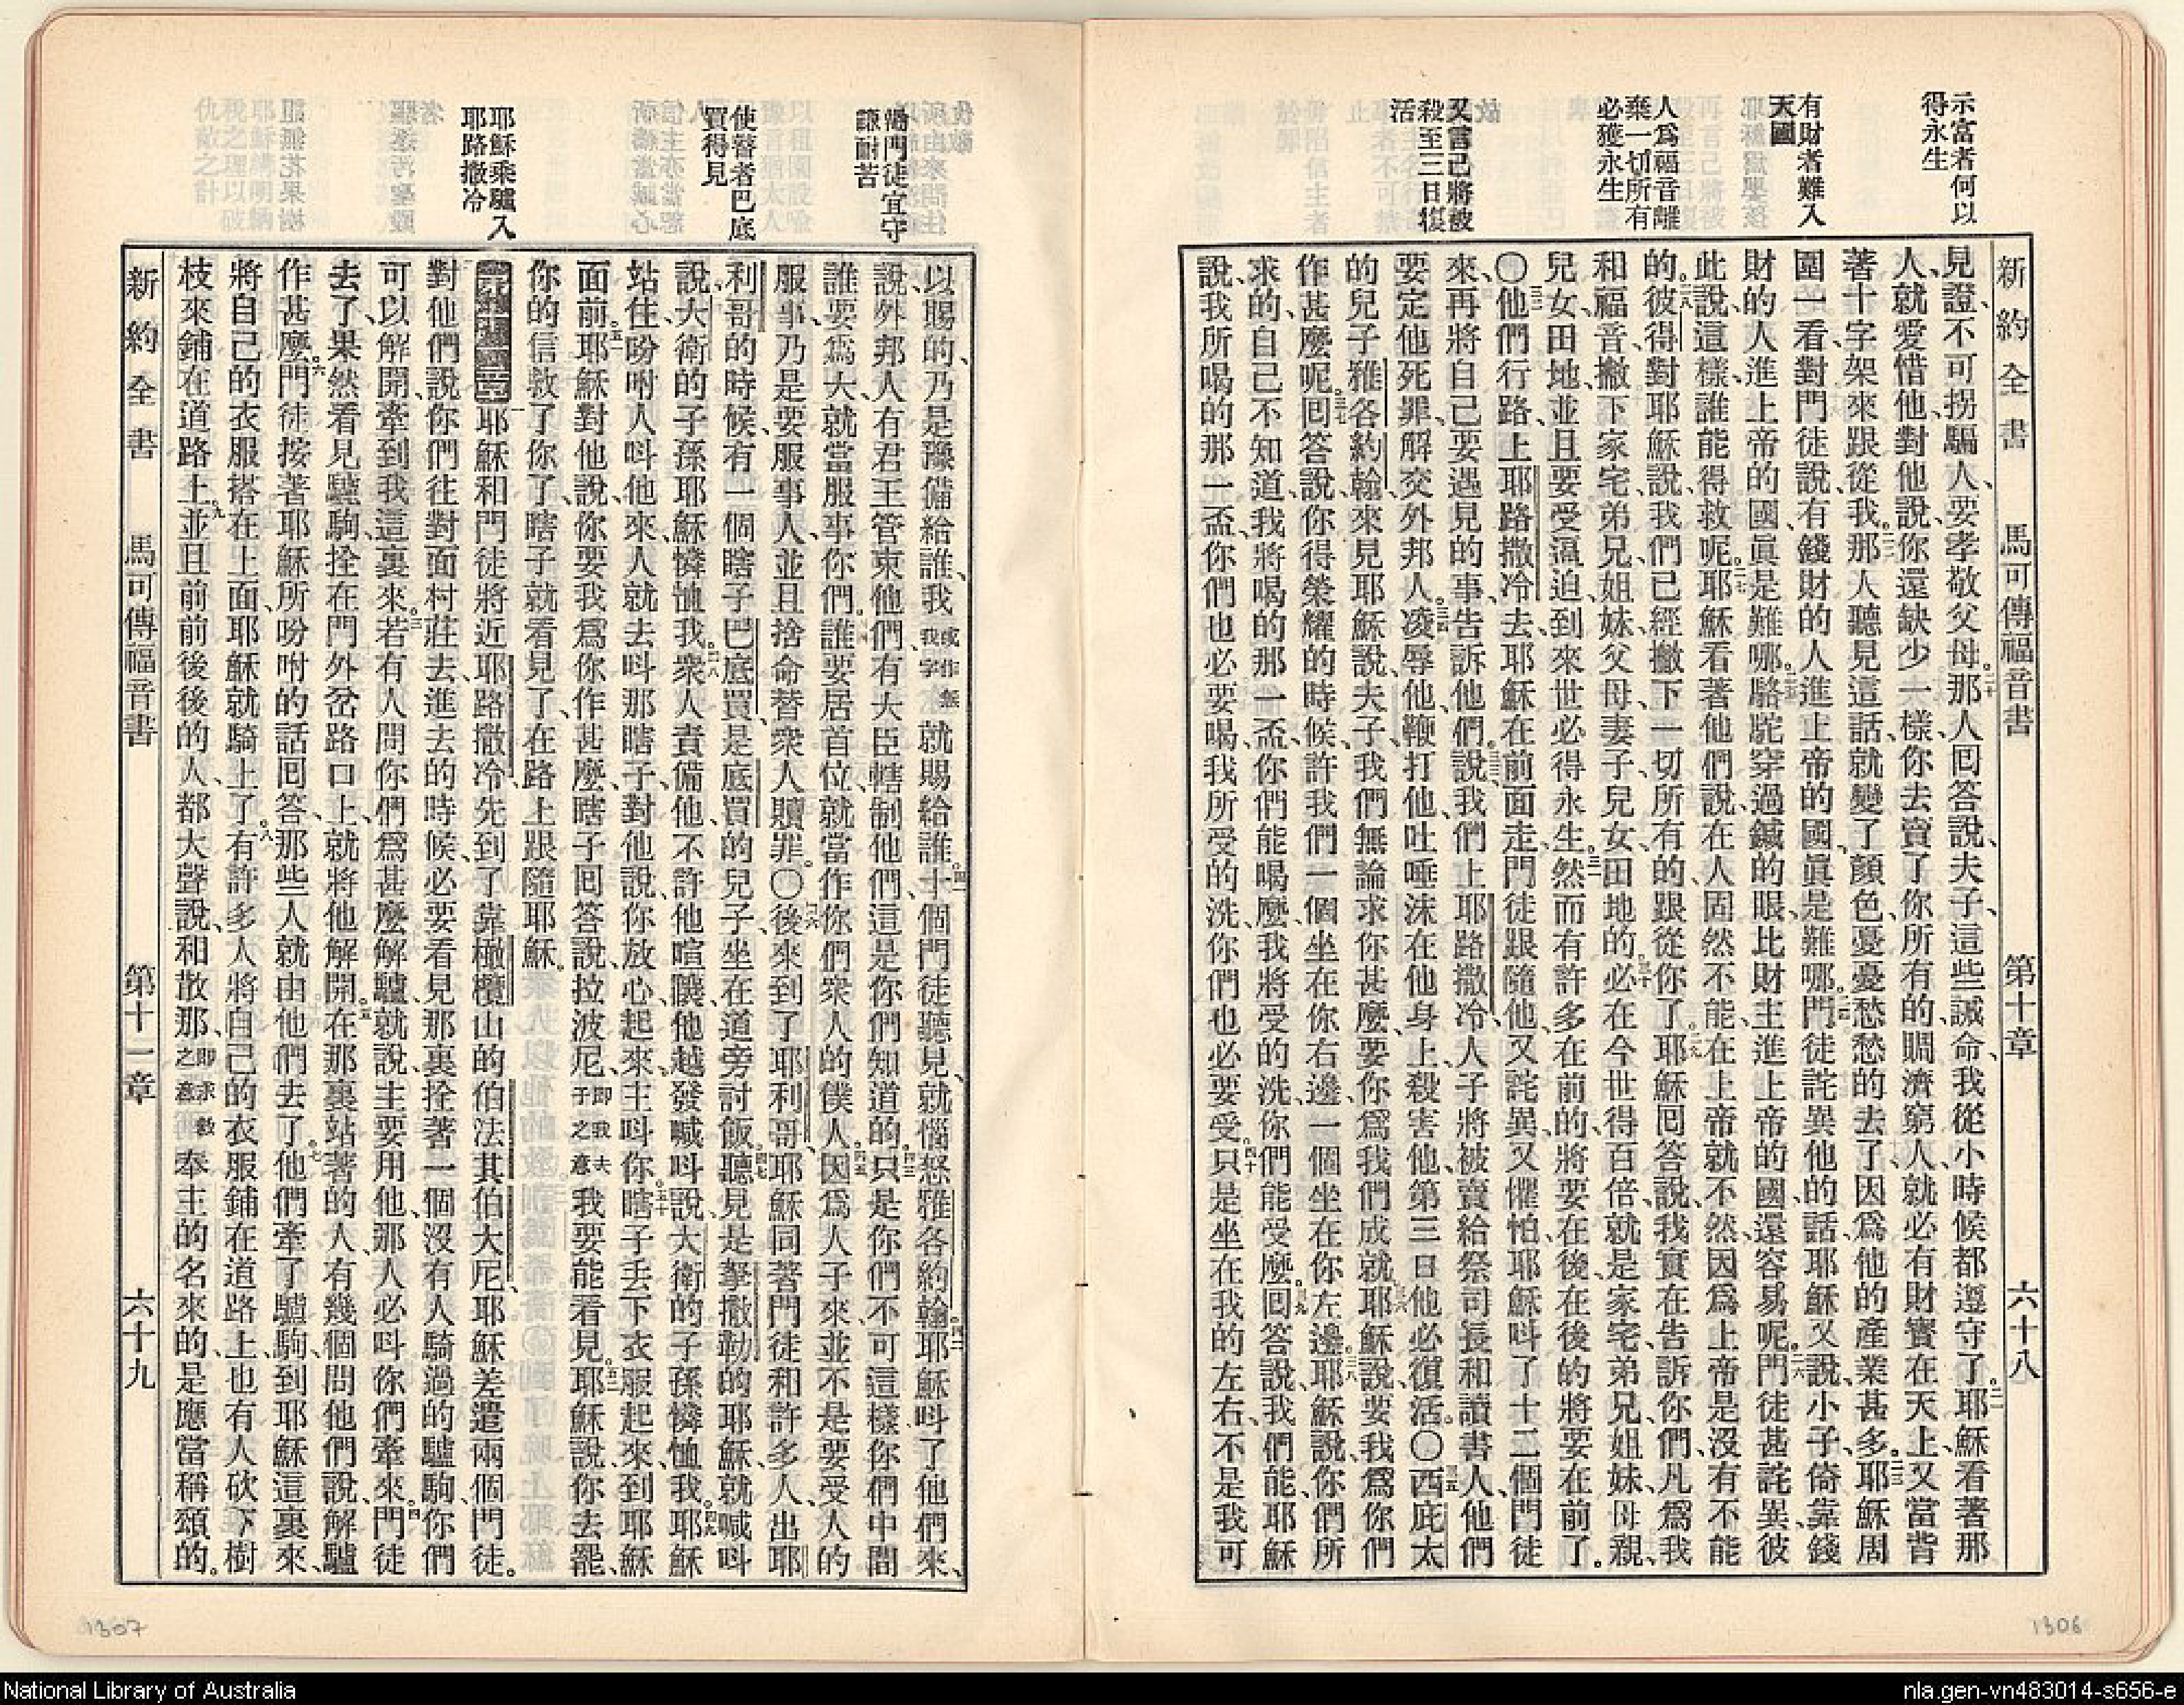 示富者何以
得永生
有財者難入
天國
人爲福音離
棄一切所有
必獲永生
又言己將被
殺至三日復
活
新約全書 馬可傳福音書 第十章 六十八
見證、不可拐騙人、要孝敬父母。二十那人回答說、夫子、這些誡命、我從小時候都遵守了。二一耶穌看著那
人、就愛惜他、對他說、你還缺少一樣、你去賣了你所有的、賙濟窮人、就必有財寶在天上、又當背
著十字架來跟從我。二二那人聽見這話、就變了顏色、憂憂愁愁的去了、因爲他的產業甚多。二三耶穌周
圍一看、對門徒說、有錢財的人進上帝的國、眞是難哪。二四門徒詫異他的話、耶穌又說、小子、倚靠錢
財的人進上帝的國、眞是難哪。二五駱駝穿過鍼的眼、比財主進上帝的國、還容易呢。二六門徒甚詫異、彼
此說、這樣誰能得救呢。二七耶穌看著他們說、在人固然不能、在上帝就不然、因爲上帝是沒有不能
的。二八彼得對耶穌說、我們已經撇下一切所有的跟從你了。二九耶穌回答說、我實在告訴你們、凡爲我
和福音、撇下家宅弟兄姐妹父母妻子兒女田地的、三十必在今世得百倍、就是家宅弟兄姐妹母親、
兒女田地、並且要受逼迫、到來世必得永生。三一然而有許多在前的、將要在後、在後的將要在前了。
〇三二他們行路、上耶路撒冷去、耶穌在前面走、門徒跟隨他、又詫異、又懼怕、耶穌呌了十二個門徒
來、再將自己要遇見的事、告訴他們。三三說、我們上耶路撒冷、人子將被賣給祭司長和讀書人、他們
要定他死罪、解交外邦人。三四凌辱他、鞭打他、吐唾沫在他身上、殺害他、第三日他必復活。〇三五西庇太
的兒子雅各約翰、來見耶穌說、夫子、我們無論求你甚麼、要你爲我們成就。三六耶穌說、要我爲你們
作甚麼呢。三七回答說、你得榮耀的時候、許我們一個坐在你右邊、一個坐在你左邊。三八耶穌說、你們所
求的、自己不知道、我將喝的那一盃、你們能喝麼、我將受的洗、你們能受麼。三九回答說、我們能、耶穌
說、我所喝的那一盃、你們也必要喝、我所受的洗、你們也必要受。四十只是坐在我的左右、不是我可
謙耐苦
使瞽者巴底
買得見
耶穌乘驢入
耶路撒冷
以賜的、乃是豫備給誰、我或作無我字就賜給誰。四一十個門徒聽見、就惱怒雅各約翰。四二耶穌呌了他們來、
說、外邦人有君王管束他們、有大臣轄制他們、這是你們知道的。四三只是你們不可這樣、你們中間
誰要爲大、就當服事你們。四四誰要居首位、就當作你們衆人的僕人。四五因爲人子來、並不是要受人的
服事、乃是要服事人、並且捨命替衆人贖罪。〇四六後來到了耶利哥、耶穌同著門徒和許多人、出耶
利哥的時候、有一個瞎子、巴底買、是底買的兒子、坐在道旁討飯。四七聽見是拏撒勒的耶穌、就喊呌
說、大衛的子孫耶穌、憐恤我。四八衆人責備他、不許他喧嚷、他越發喊呌說、大衛的子孫憐恤我。四九耶穌
站住、吩咐人呌他來、人就去呌那瞎子、對他說、你放心、起來、主呌你。五十瞎子丟下衣服、起來、到耶穌
面前。五一耶穌對他說、你要我爲你作甚麼、瞎子回答說、拉波尼、即我夫子之意我要能看見。五二耶穌說、你去罷、
你的信救了你了、瞎子就看見了、在路上跟隨耶穌。
耶穌和門徒將近耶路撒冷、先到了靠橄欖山的伯法其伯大尼、耶穌差遣兩個門徒。
對他們說、你們往對面村莊去、進去的時候、必要看見那裏拴著一個沒有人騎過的驢駒、你們
可以解開、牽到我這裏來。三若有人問你們爲甚麼解驢、就說、主要用他、那人必呌你們牽來。四門徒
去了、果然看見驢駒、拴在門外岔路口上、就將他解開。五在那裏站著的人、有幾個問他們說、解驢
作甚麼。六門徒按著耶穌所吩咐的話回答、那些人就由他們去了。七他們牽了驢駒、到耶穌這裏來、
將自己的衣服搭在上面、耶穌就騎上了。八有許多人將自己的衣服鋪在道路上、也有人砍下樹
枝來鋪在道路上。九並且前前後後的人、都大聲說、和散那、即求救之意奉主的名來的、是應當稱頌的。
新約全書 馬可傳福音書 第十一章 六十九
1307
1306
National Library of Australia
nla.gen-vn483014-s656-e